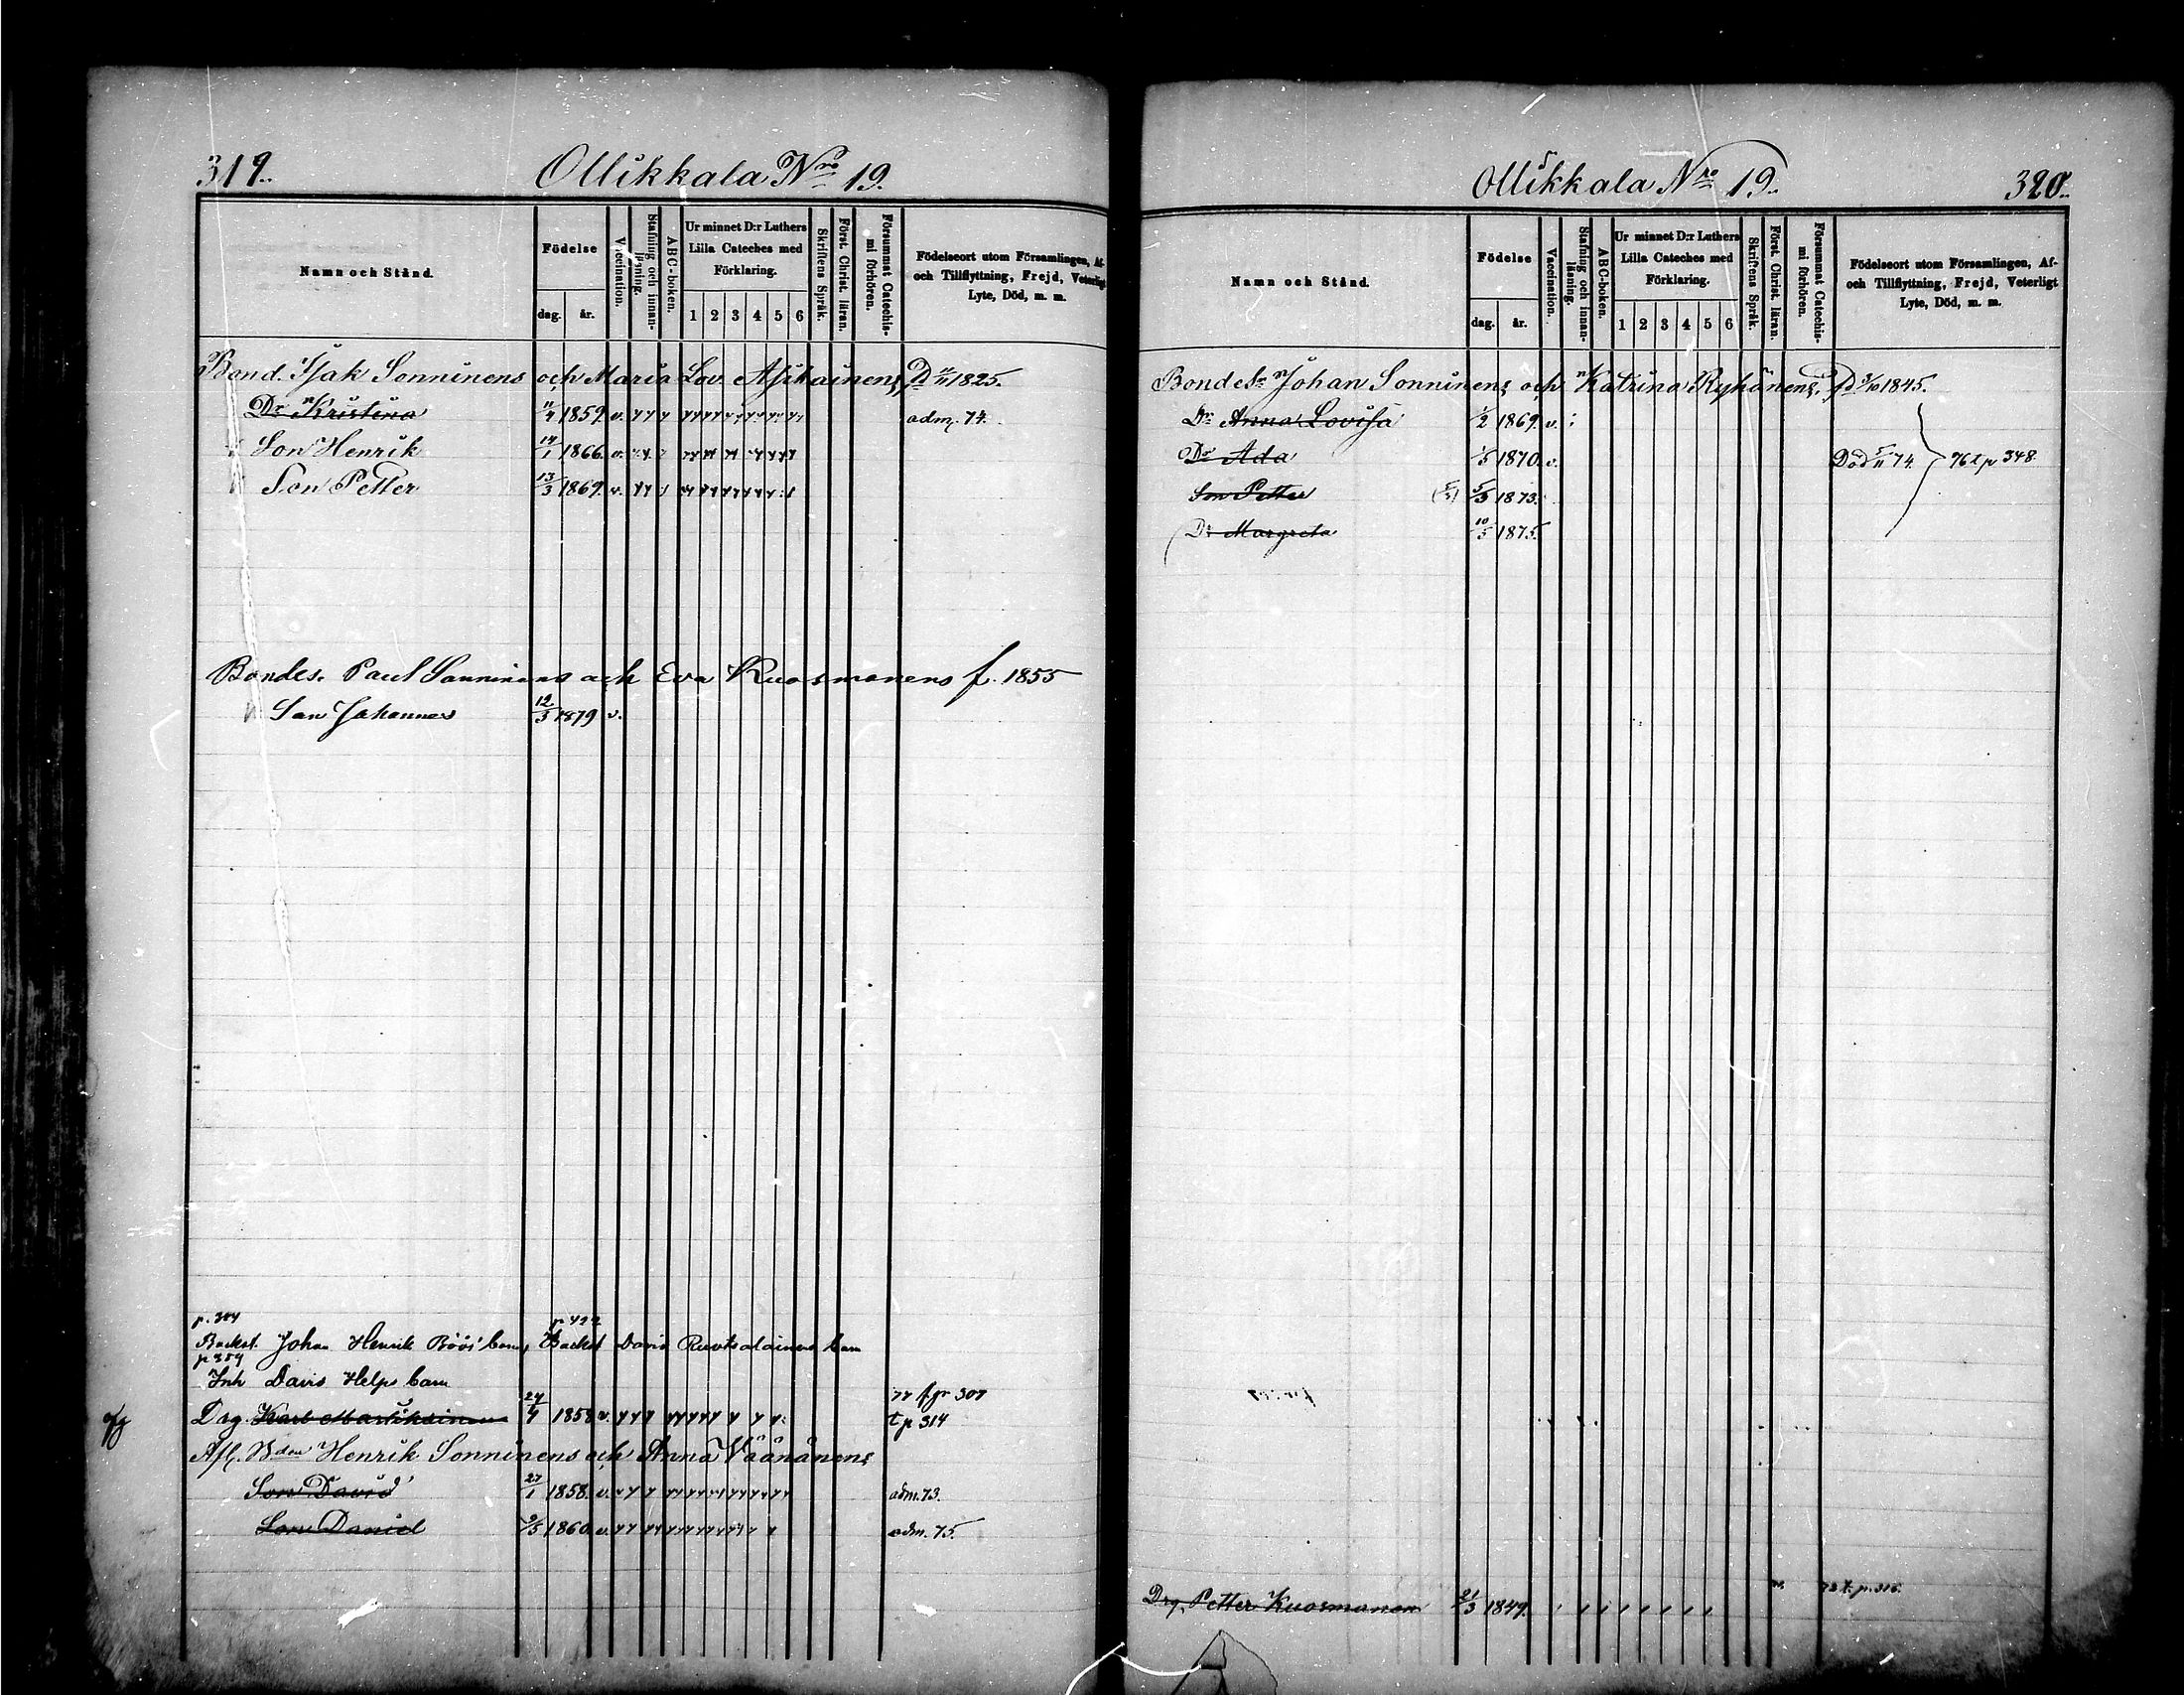 319.
Ollikkala Nro 19.
Namn och Stånd.
Födelse
dag. år.
Vaccination.
Stafning och innanläsning.
ABC-boken.
Ur minnet D:r Luthers Lilla Cateches med Förklaring.
1 2 3 4 5 6
Skriftens Språk.
Först. Christ. läran.
Försummat Catechismi förhören.
Födelseort utom Församlingen, Af-
och Tillflyttning, Frejd, Veterligt
Lyte, Död, m. m.
Bond. Isak Sonninens och Maria Lov. Asikainens, 1825.
Dr Kristina 11/4 1859. v. adm. 74.
Son Henrik 14/1 1866. v.
Son Petter 13/3 1869. v.
Bondes. Paul Sonninens och Eva Kuosmanens f. 1855
Son Johannes 12/3 1879 v.
p. 304 p. 422
Backst. Johan Henrik Böös' barn, Backst David Ruotsalainens barn
p 354
Inh David Helps barn
77 f. p 307
Drg. Karl Martikainen 24/4 1858 v. t p 314
Afl. Bden Henrik Sonninens och Anna Väänänens
Son David 27/1 1858. v. adm. 73.
Son Daniel 9/5 1860. v. adm. 75.
Ollikkala Nro 19.
320.
Namn och Stånd.
Födelse
dag. år.
Vaccination.
Stafning och innanläsning.
ABC-boken.
Ur minnet D:r Luthers Lilla Cateches med Förklaring.
1 2 3 4 5 6
Skriftens Språk.
Först. Christ. läran.
Försummat Catechismi förhören.
Födelseort utom Församlingen, Af-
och Tillflyttning, Frejd, Veterligt
Lyte, Död, m. m.
Bondes. Johan Sonninens och Katrina Ryhänens. 1845.
Dr Anna Lovisa 1/2 1869. v.
Dr Ada 1/5 1870. v. Död 5/11 74. 76 t p 348.
Son Petter 5/3 1873.
Dr Margreta 10/5 1875.
Drg. Petter Kuosmanen 21/3 1849. 73 t. p. 316.